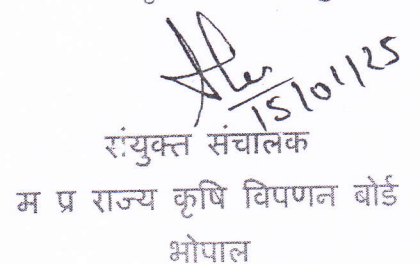 15/01/25
संयुक्त संचालक
म प्र राज्य कृषि विपणन बोर्ड
भोपाल